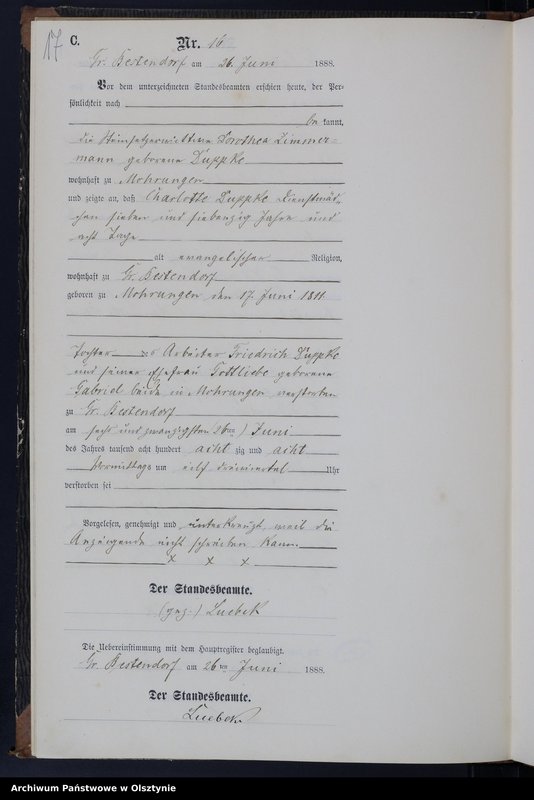 17
C.
Nr. 16
Gr. Bestendorf am 26. Juni 1888.
Vor dem unterzeichneten Standesbeamten erschien heute, der Per-
sönlichkeit nach
be kannt,
die Steinsetzerwittwe Dorothea Zimmer-
mann geborene Duppke
wohnhaft zu Mohrungen
und zeigte an, daß Charlotte Duppke Dienstmäd-
chen sieben und siebenzig Jahre und
acht Tage
alt evangelischer Religion,
wohnhaft zu Gr. Bestendorf
geboren zu Mohrungen den 17. Juni 1811
Tochter des Arbeiter Friedrich Duppke
und seiner Ehefrau Gottliebe geborene
Gabriel beide in Mohrungen verstorben
zu Gr. Bestendorf
am sechs und zwanzigsten (26ten) Juni
des Jahres tausend acht hundert acht zig und acht
Vormittags um dreiviertel Uhr
verstorben sei
Vorgelesen, genehmigt und unterkreuzt, weil die
Anzeigende nicht schreiben kann.
x x x
Der Standesbeamte.
(gez.) Luebeck
Die Uebereinstimmung mit dem Hauptregister beglaubigt.
Gr. Bestendorf am 26ten Juni 1888.
Der Standesbeamte.
Luebeck
Archiwum Państwowe w Olsztynie